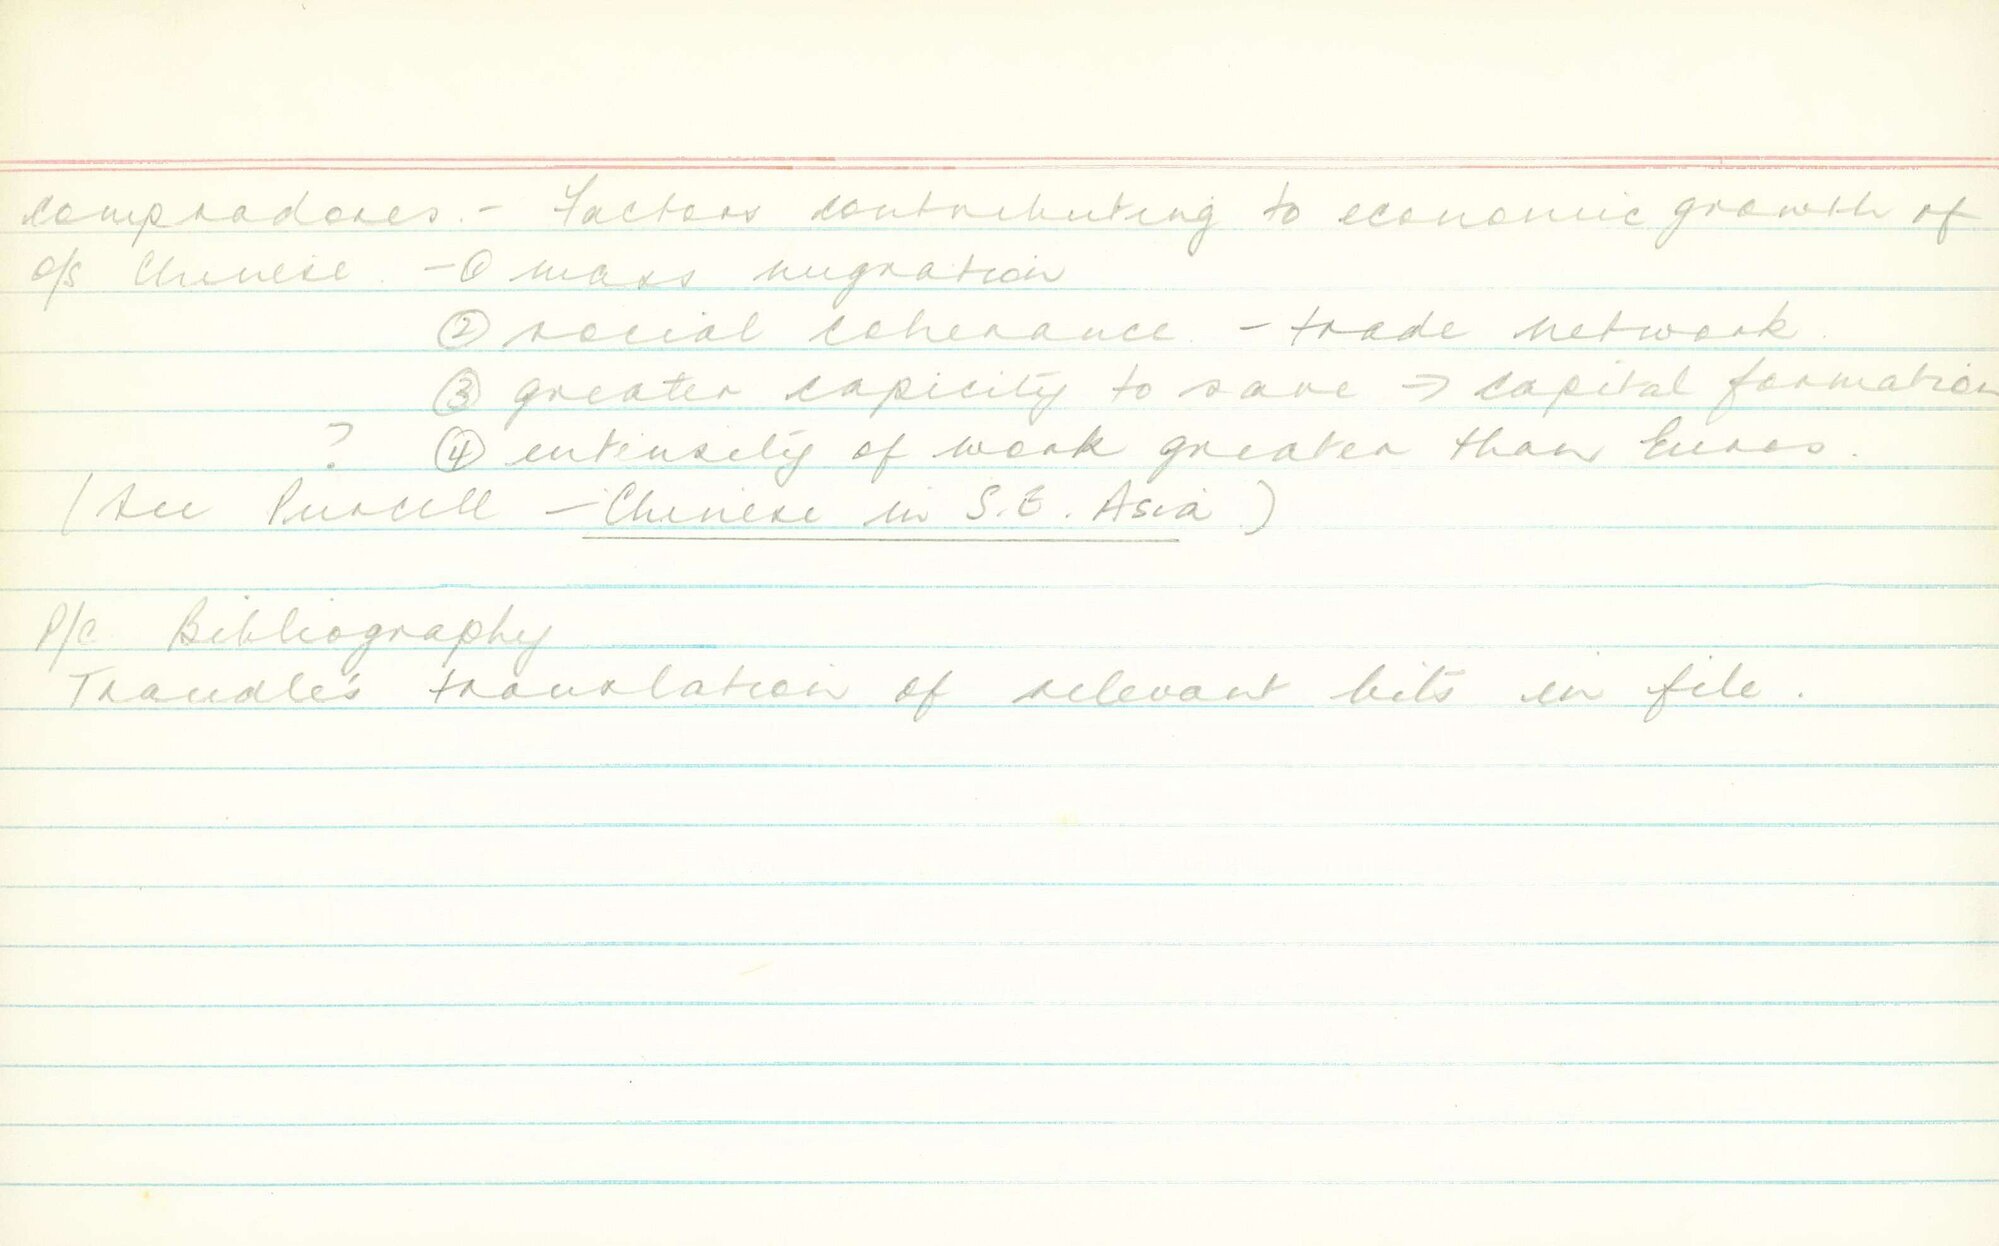 compradores. - Factors contributing to economic growth of
o/s Chinese. - ① mass migration
② social coherance. - trade network.
③ greater capicity to save → capital formation
? ④ intensity of work greater than Euros.
(See Purcell - Chinese in S.E. Asia)
P/c Bibliography
Traudle's translation of relevant bits in file.